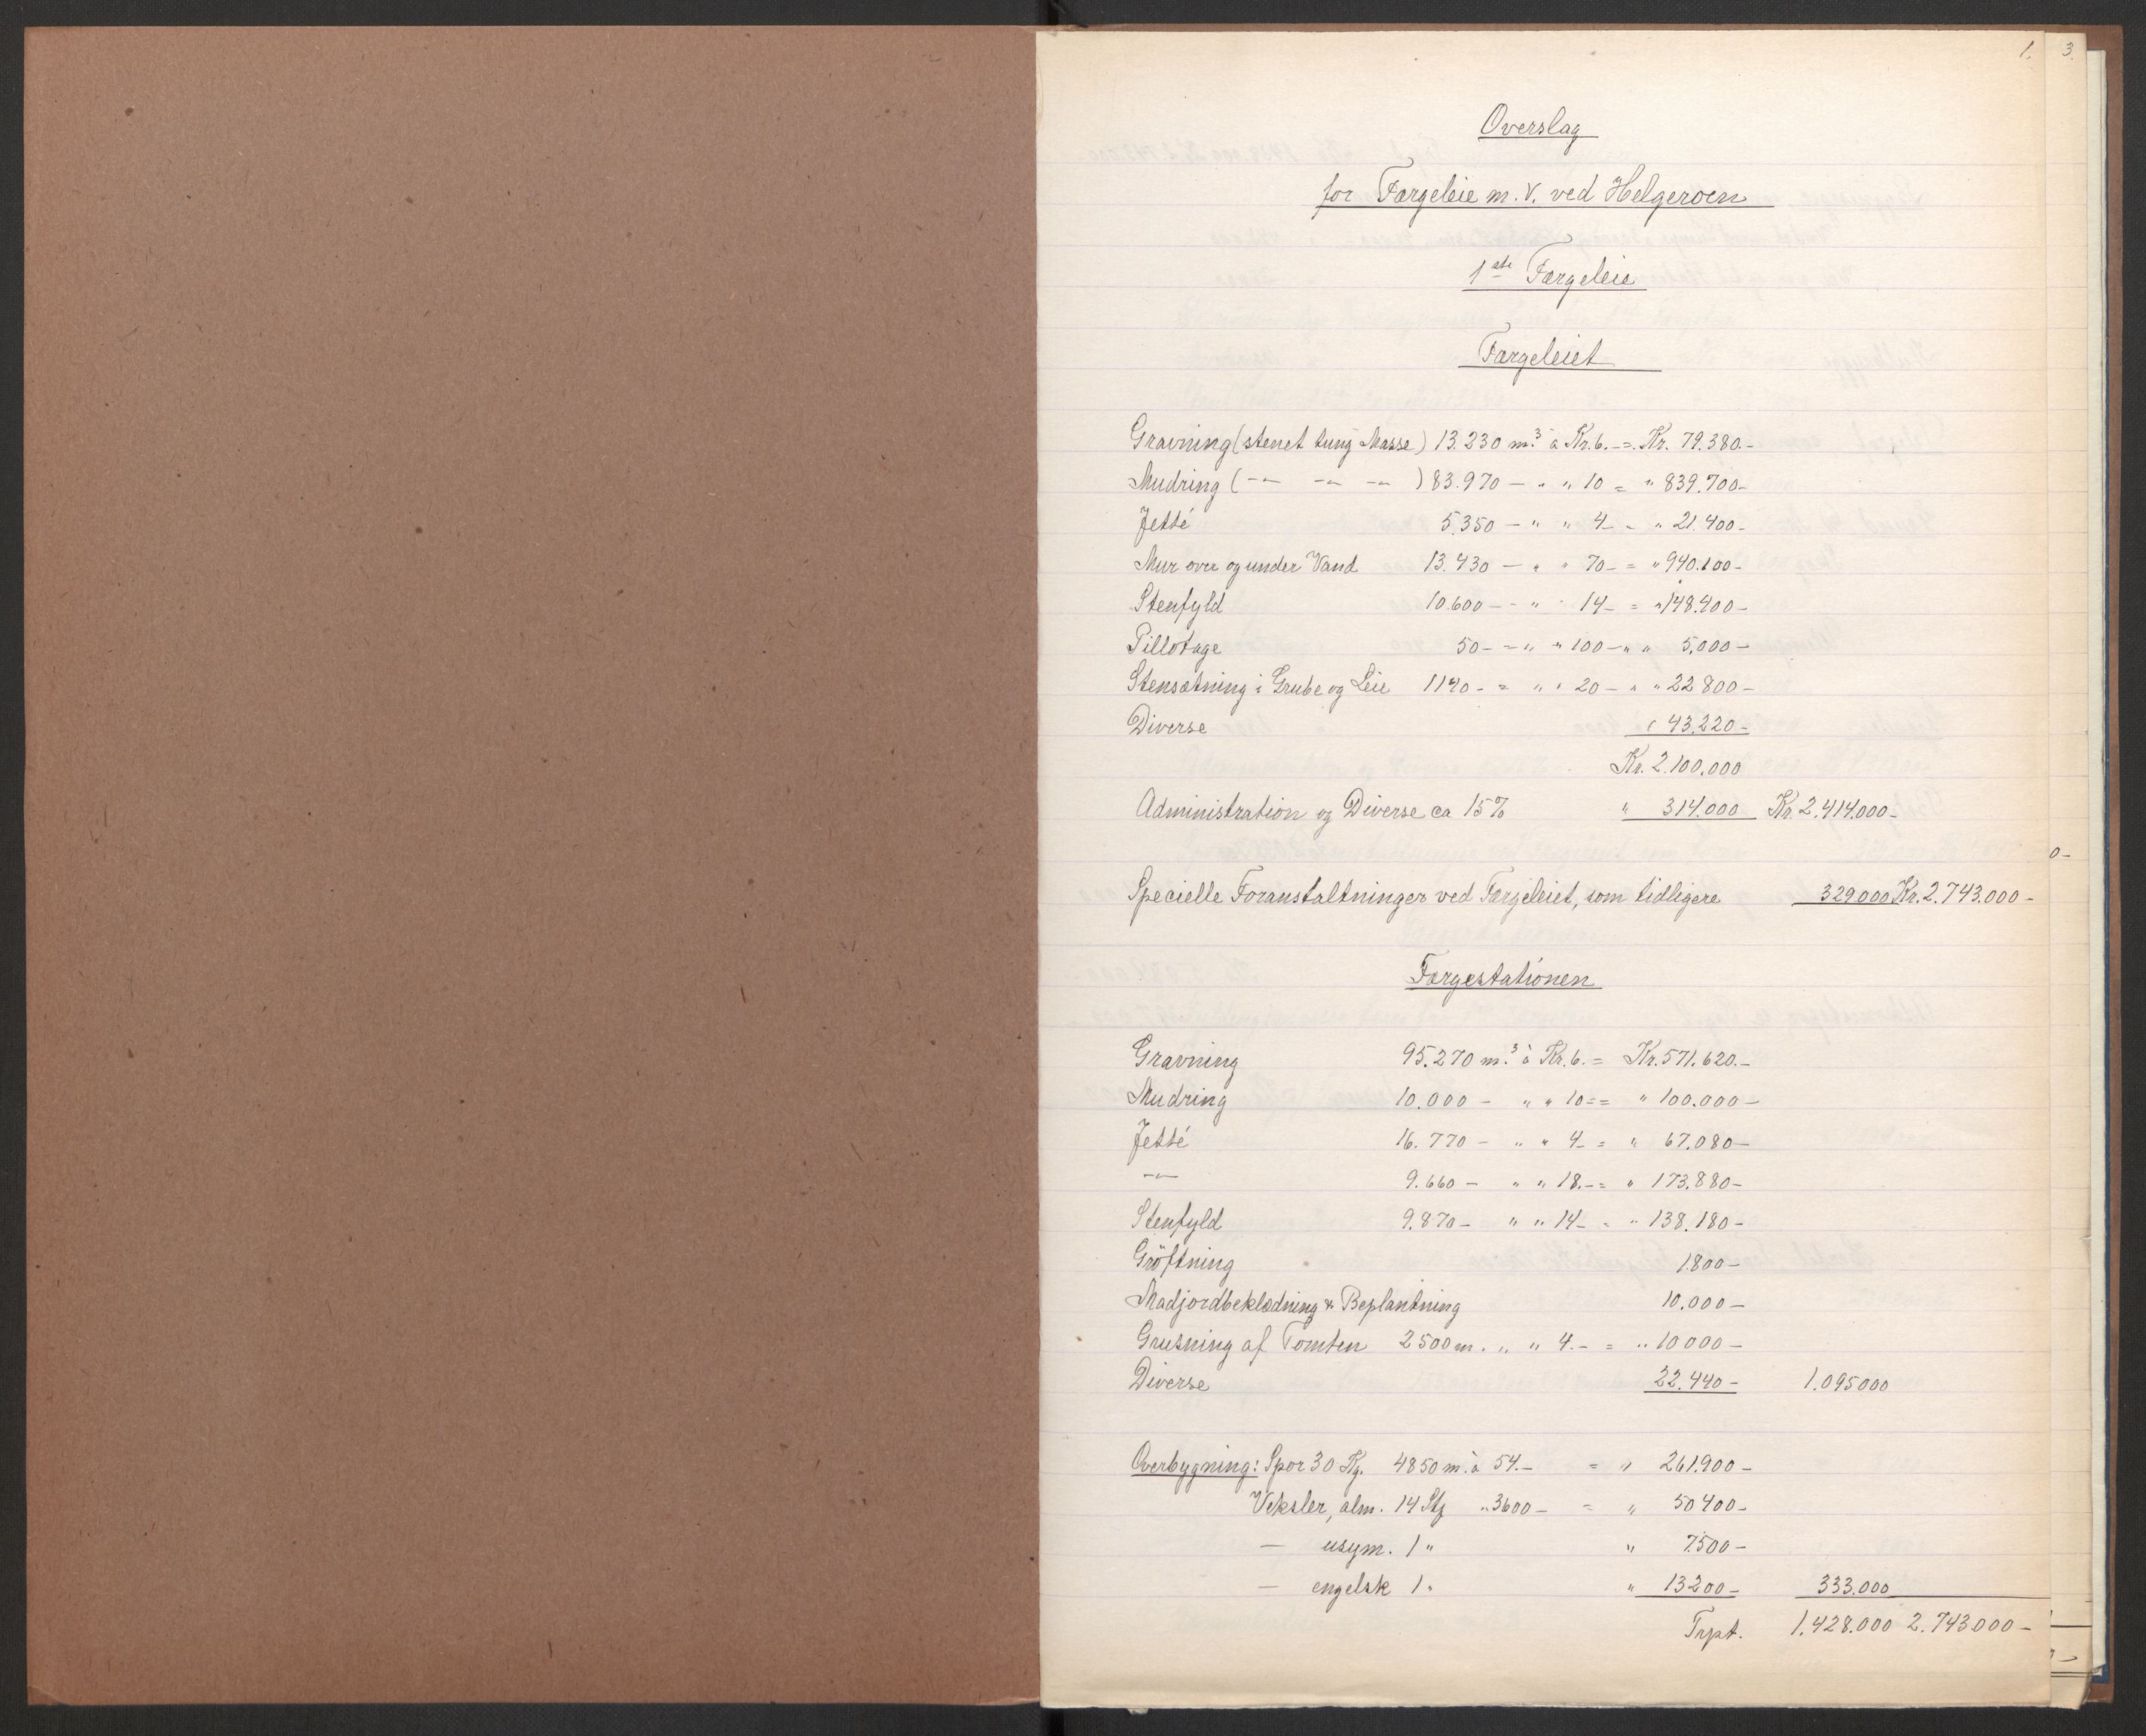 1. 3.
Overslag
for Færgeleie m.v. ved Helgeroen
1ste Færgeleie
Færgeleiet
Gravning (stenet tung Masse) 13.230 m.3 à Kr. 6.- = Kr. 79.380.-
Mudring (-"- -"- -"-) 83.970 - " " 10 = " 839.700-
Jetté 5.350 - " " 4- = " 21.400-
Mur over og under Vand 13.430 - " " 70- = " 940.100-
Stenfyld 10.600 - " " 14- = " 148.400-
Pillotage 50 - = " " 100 - " " 5.000 -
Stensætning i Grube og Leie 1140 - = " " 20 - " " 22800 -
Diverse " 43.220-
Kr. 2.100.000
Administration og Diverse ca 15% " 314.000 Kr. 2.414.000-
0-
Specielle Foranstaltninger ved Færgeleiet, som tidligere 329.000 Kr. 2.743.000-
Færgestationen
Gravning 95.270 m.3 à Kr. 6. = Kr. 571.620.-
Mudring 10.000 - " " 10 = = " 100.000-
Jetté 16.770 - " " 4- = " 67.080-
-"- 9.660 - " " 18.- = " 173.880-
Stenfyld 9.870 - " " 14- = " 138.180-
Gröftning 1.800-
Madjordbeklædning & Beplantning 10.000-
Grusning af Tomten 2500 m. " " 4.- = " 10000-
Diverse 22.440- 1.095000
Overbygning: Spor 30 Kg. 4850 m. à 54.- = " 261.900-
Veksler, alm. 14 Stk " 3600- = " 50400-
- usym. 1 " " 7.500-
- engelsk 1 " " 13200- 333.000
Trpt. 1.428.000 2.743.000-